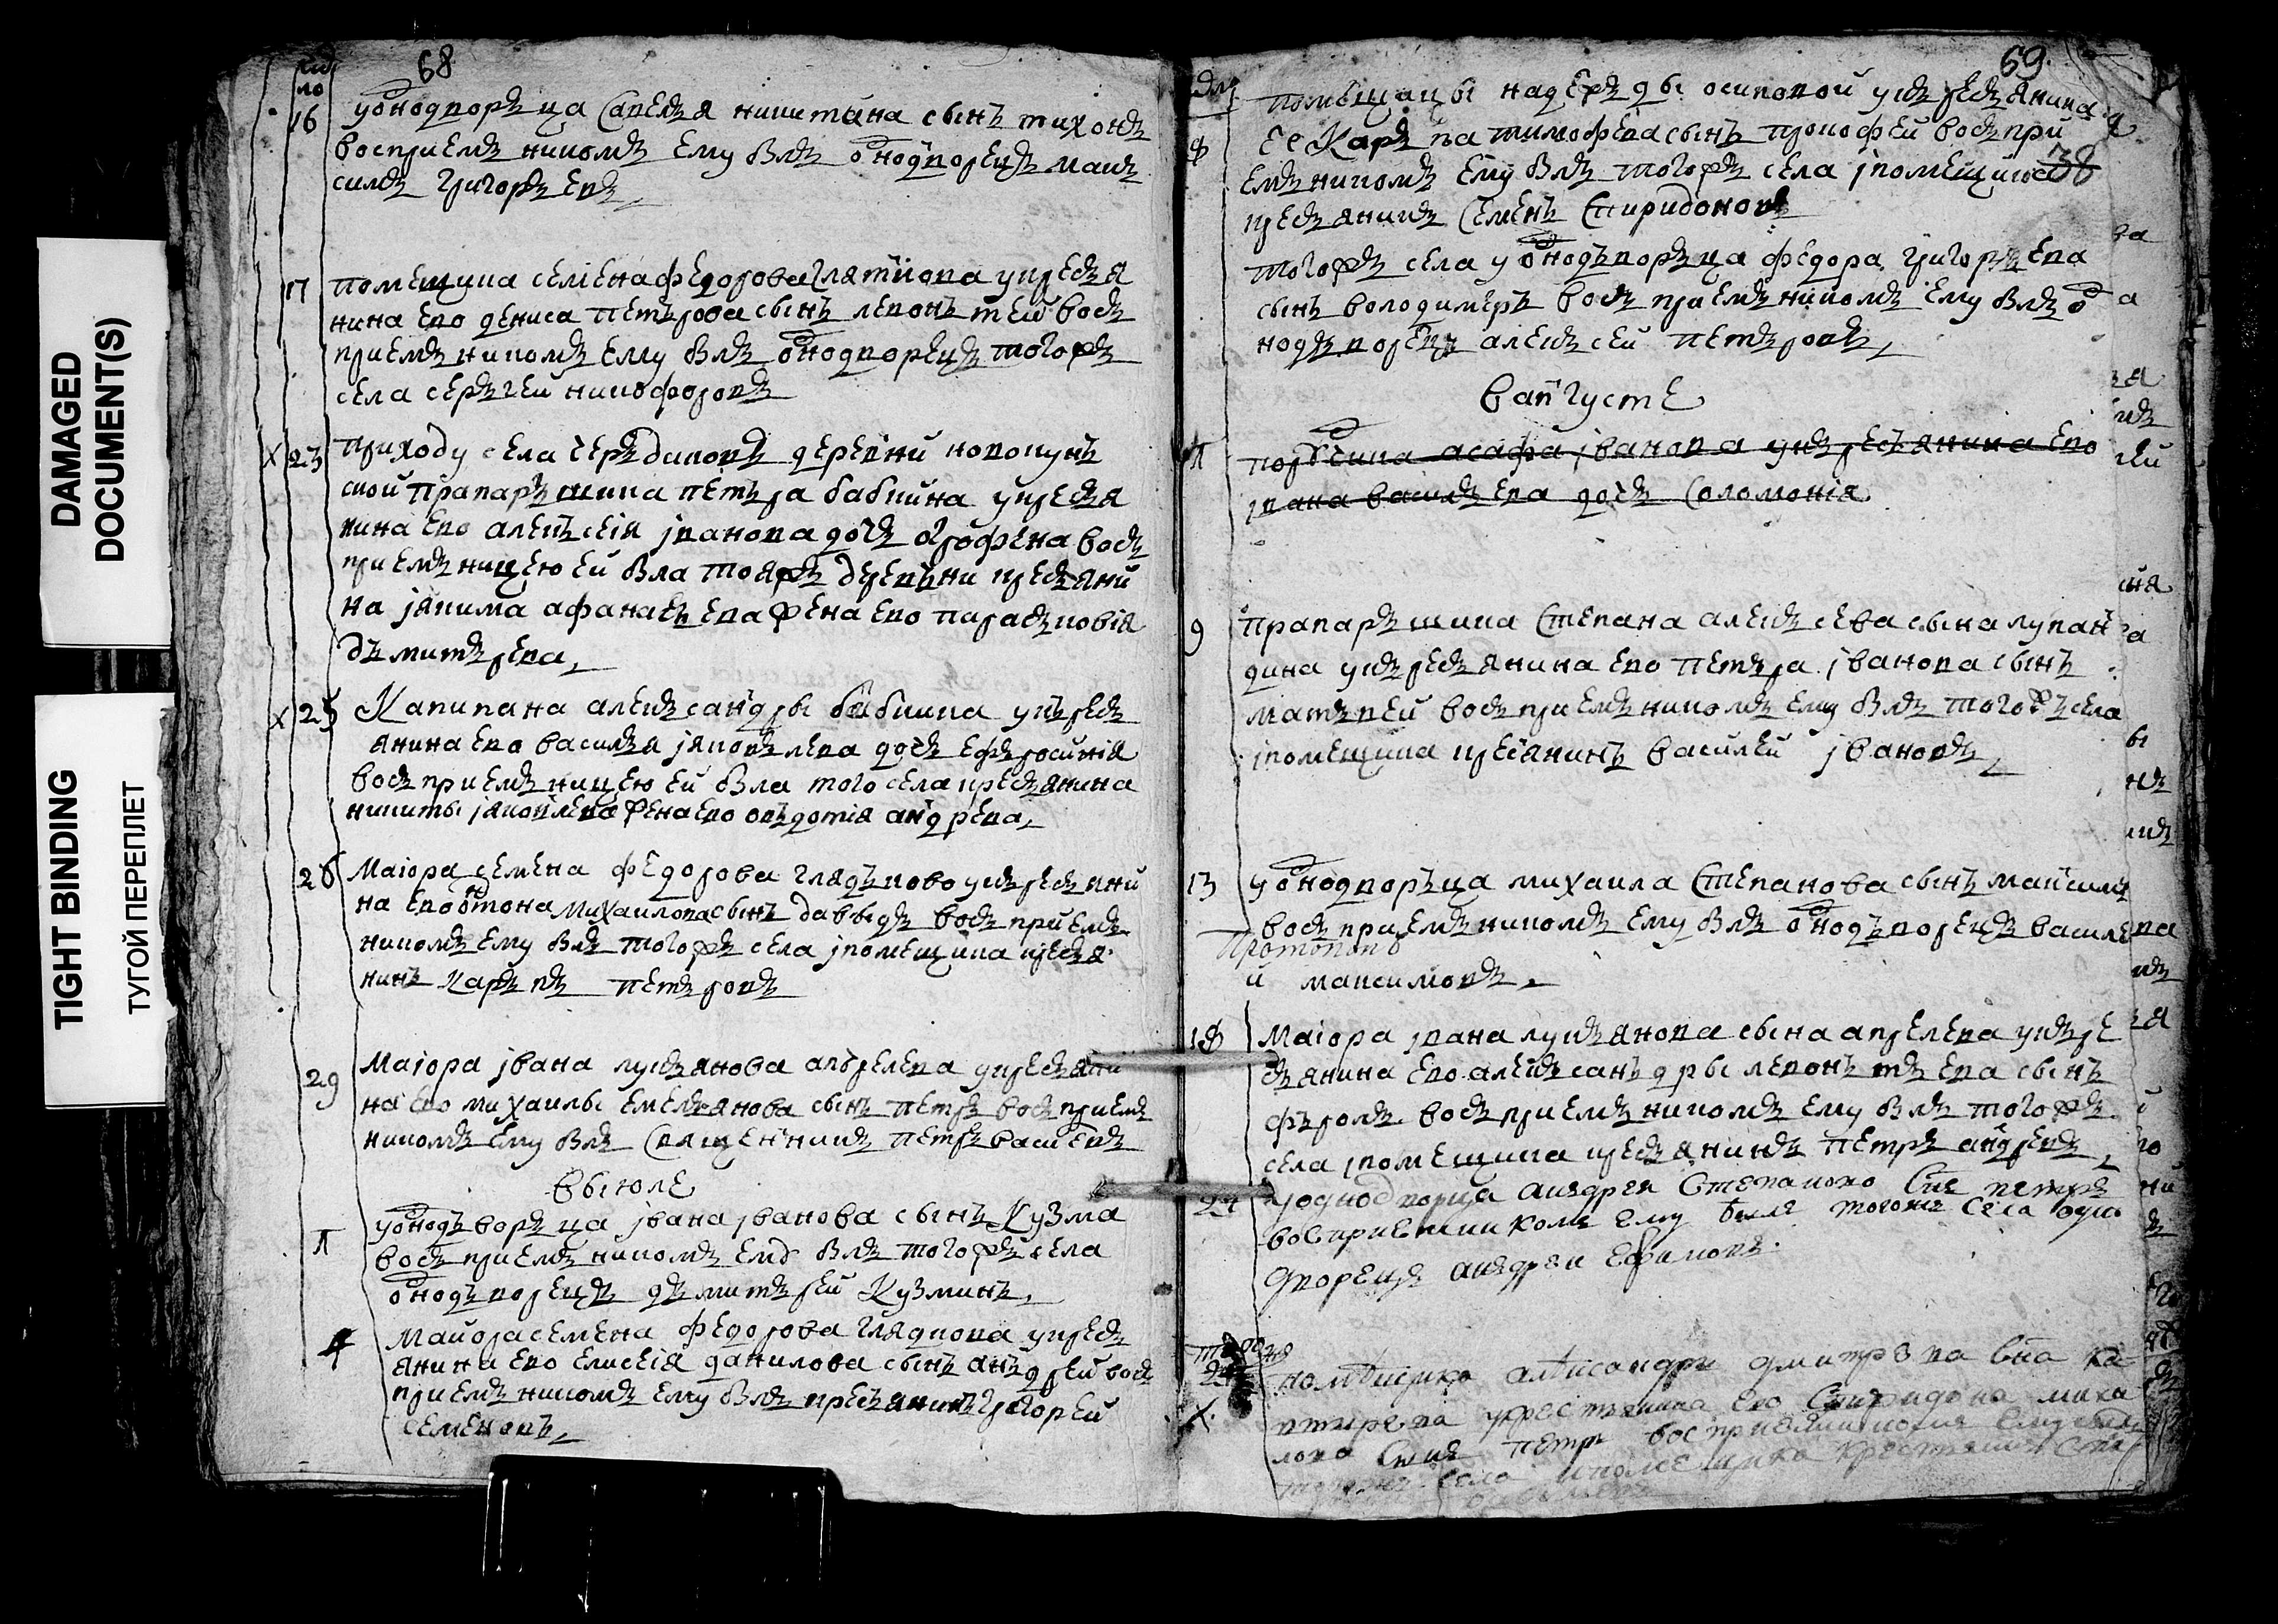 DAMAGED
DOCUMENT(S)
TIGHT BINDING
ТУГОЙ ПЕРЕПЛЕТ
68
16 уоднодворъца Савелья никитина сынъ тихонъ
восприемъ никомъ ему былъ однодворецъ мак
симъ григоръевъ
17 помещика семена федорова гляткова укресья
нина ево дениса петърова сынъ левонътей восъ
приемъ никомъ ему былъ однодворецъ тогожъ
села серъгей никофоровъ
23 приходу села черъдиковъ деревни новопунъ
ской прапаръщика петъра бабкина укресья
нина ево алеикъсея јванова дочь огрофена восъ
приемъ ницею ей была тояжъ деревъни кресъяни
на јакима афанасьева жена ево парасъковия
дъмитърева
25 Капитана алекъсандры бабкина укъресь
янина ево василья јаковлева дочь ефъросиния
восъ приемъ ницею ей была того села кресьянина
никиты јаковлева жена ево овъдотия андрева
26 Маіора семена федорова глядъково укъресъяни
на ево антона михаилова сынъ давыдъ восъ приемъ
никомъ ему былъ тогожъ села јпомещика кресья
нинъ каръпъ петъровъ
29 Маіора јвана лукъянова апрелева укресьяни
на ево михаилы емельянова сынъ петръ восъ приемъ
никомъ ему былъ священникъ петръ василевъ
выюле
1 уоднодъворъца јвана јванова сынъ кузма
восъ приемъ никомъ ему былъ тогожъ села
однодъворецъ дъмитърей Кузминъ
4 майора семена федорова глядкова укресь
янина ево елисея данилова сынъ анъдрей восъ
приемъ никомъ ему былъ кресьянинъ григорей
семеновъ
69
38
помещицы надежъды осиповой укъресьянина
8 ее Каръпа тимофева сынъ прокофей восъ при
емъ никомъ ему былъ тогожъ села јпомещика
кресьянинъ Семенъ Спиридоновъ
тогожъ села уоднодъворъца федора григоръева
сынъ володимеръ восъ приемъ никомъ ему былъ од
нодъворецъ алекъсей петъровъ
в августе
1 асафа јванова укъресьянина ево
јвана василъева дочь Соломония
9 прапаръщика Степана алекъсева сына лупан
дина укъресьянина ево петъра јванова сынъ
матъвей восъ приемъ никомъ ему былъ тогожъ села
јпомещика кресянинъ василей јвановъ
13 уоднодворъца михаила Степанова сынъ маисимъ
восъ приемъ никомъ ему былъ однодъворецъ василе
й максимовъ
18 Маіора јвана лукъянова сына апрелева укъре
сьянина ево алекъсанъдры левонътъева сынъ
фъролъ восъ приемъ никомъ ему былъ тогожъ
села јпомещика кресьянинъ петръ андревъ
24 уоднодворца андрея Степанова Снъ петръ
восприемникомъ ему былъ тогожъ села одно
дворецъ андрей Ефимовъ
помещика александра дмитрева сна
укрестьянина ево Спиридона миха
лова Снъ петръ восприемникомъ ему былъ
села помещика крестьянинъ